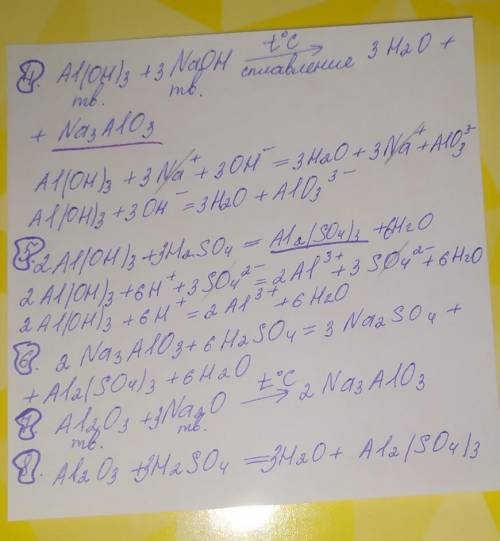 4. Al(OH)3 + 3 NaOH t°C → сплавление 3 H2O +
тв. тв.
+ Na3AlO3
Al(OH)3 + 3Na⁺ + 3OH⁻ = 3H2O + 3Na⁺ + AlO3³⁻
Al(OH)3 + 3OH⁻ = 3H2O + AlO3³⁻
5. 2Al(OH)3 + 3H2SO4 = Al2(SO4)3 + 6H2O
2Al(OH)3 + 6H⁺ + 3SO4²⁻ = 2Al³⁺ + 3SO4²⁻ + 6H2O
2Al(OH)3 + 6H⁺ = 2Al³⁺ + 6H2O
6. 2 Na3AlO3 + 6H2SO4 = 3 Na2SO4 +
+ Al2(SO4)3 + 6H2O
7. Al2O3 + 3Na2O t°C → 2 Na3AlO3
тв. тв.
8. Al2O3 + 3H2SO4 = 3H2O + Al2(SO4)3